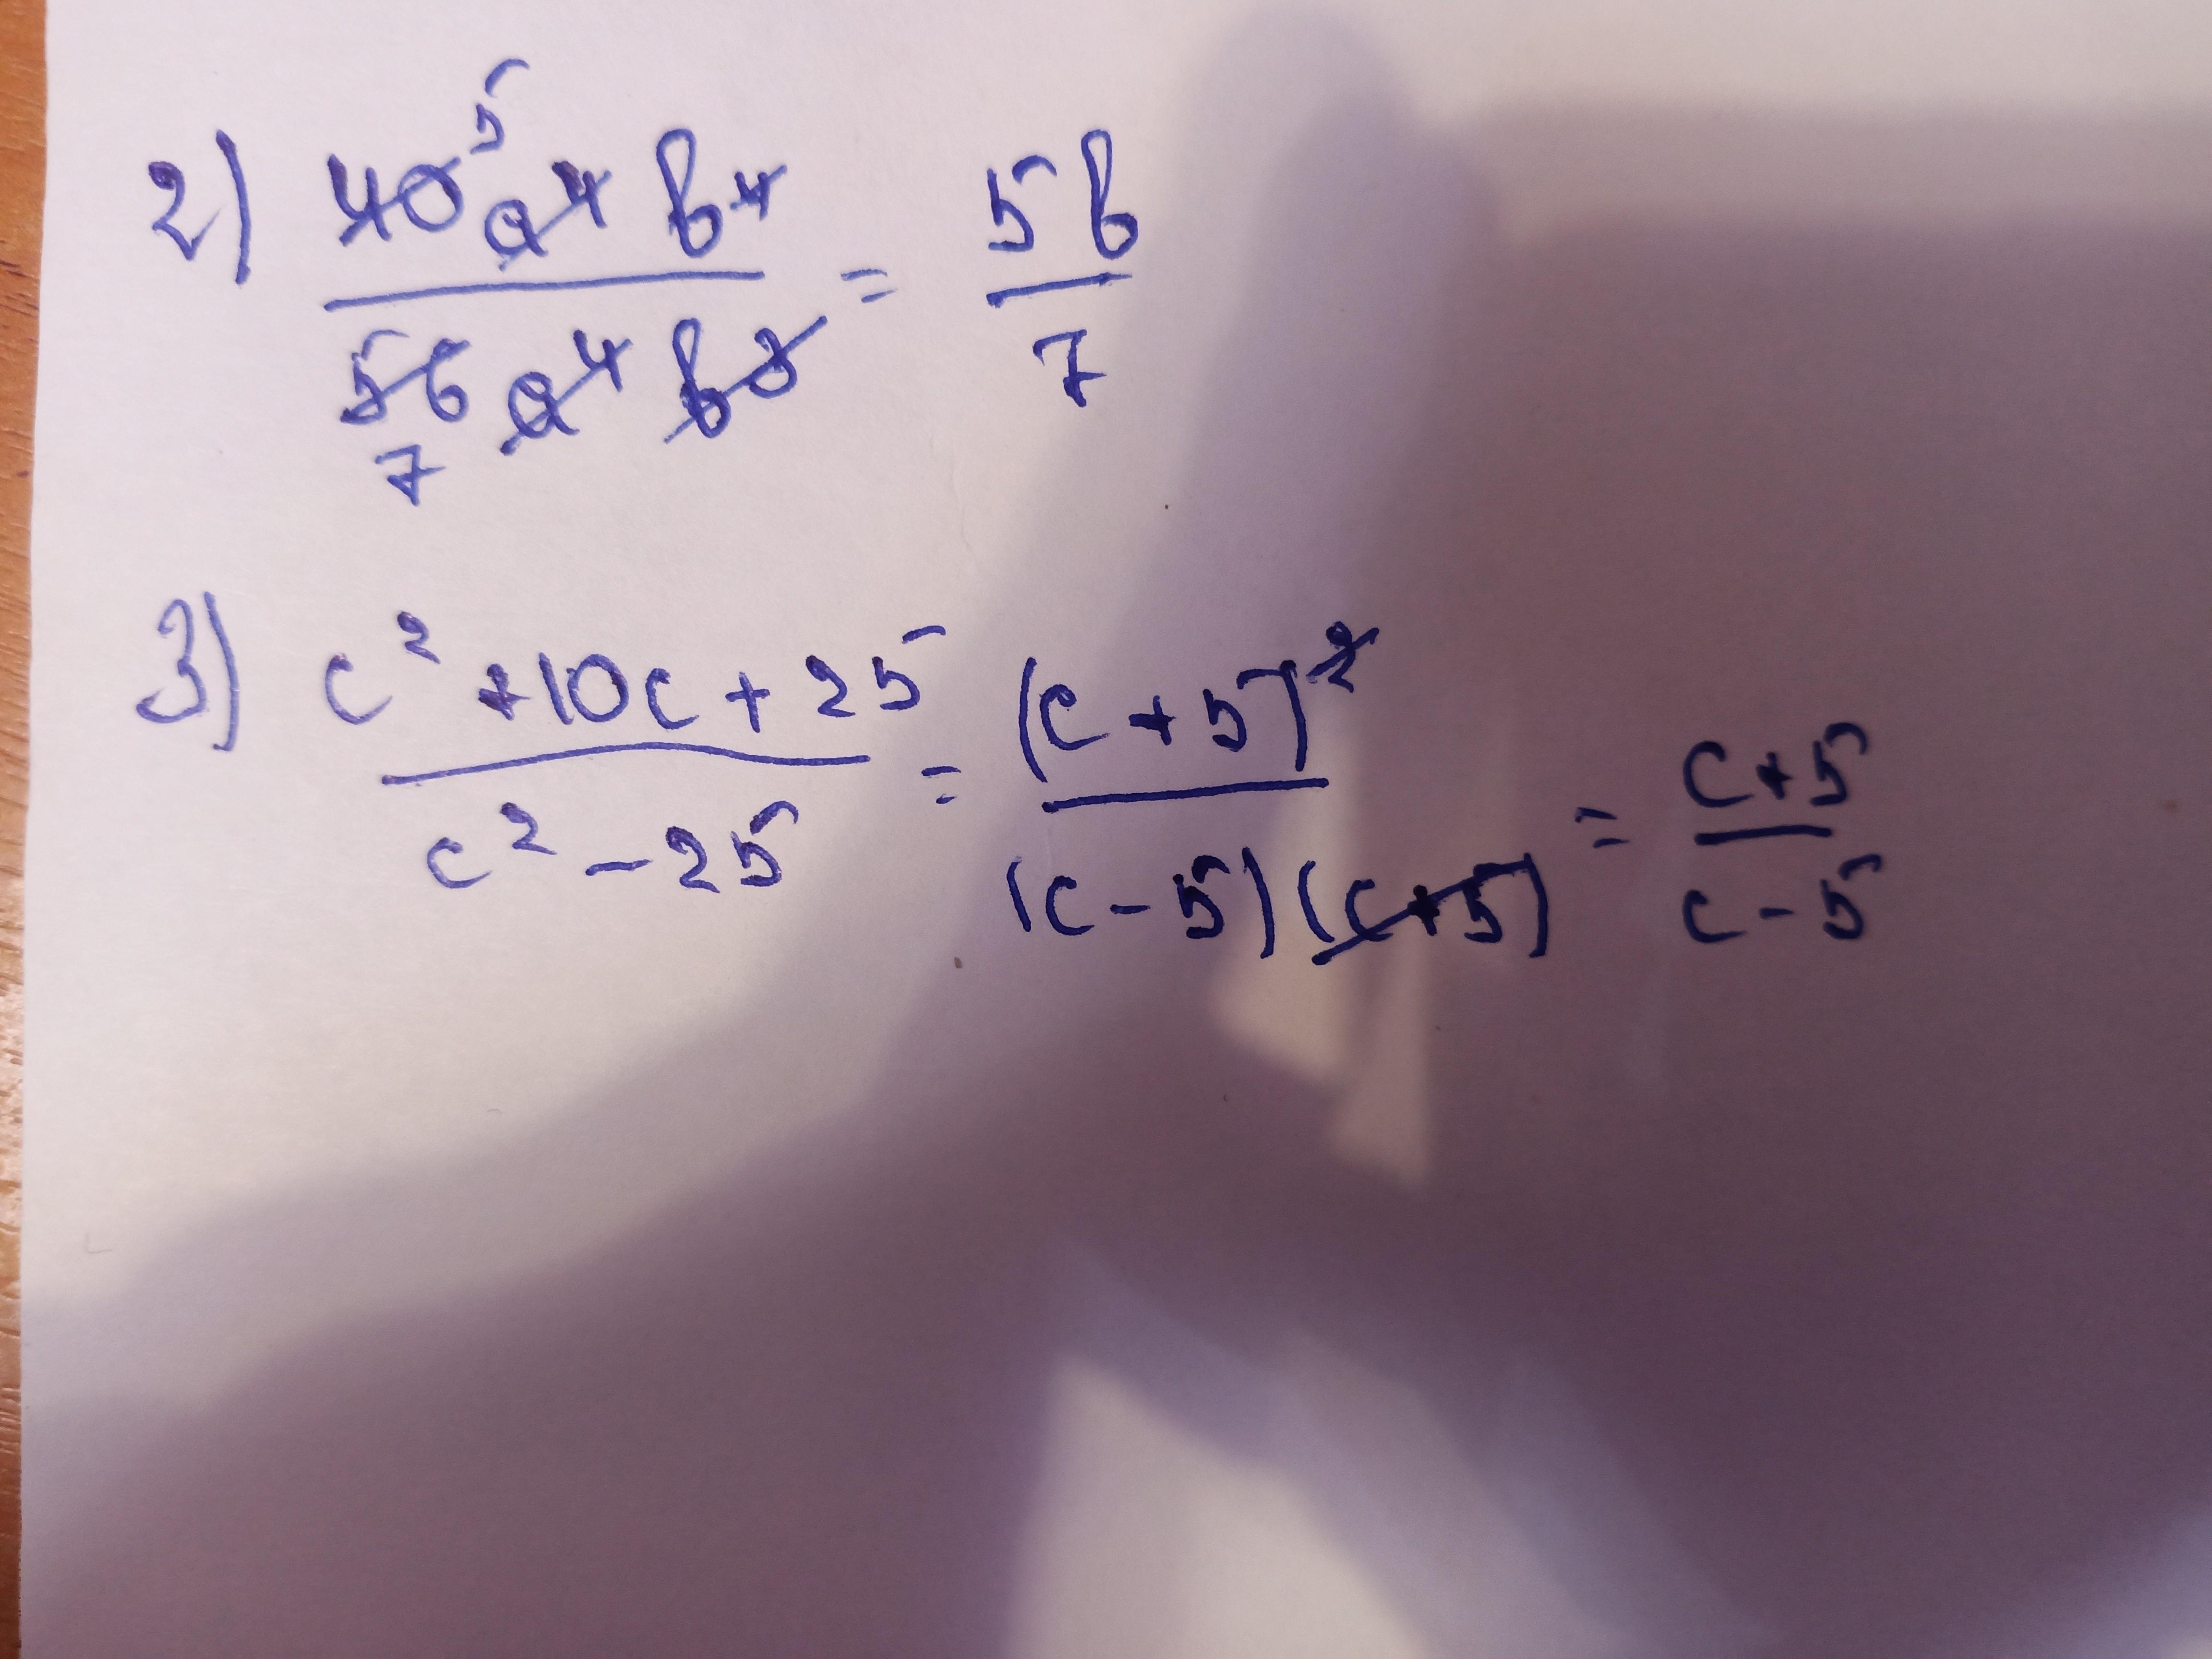 2) 40⁵a⁴b⁴ / 56a⁴b³ = 5b / 7
7
3) c² + 10c + 25 / c² - 25 = (c + 5)² / (c - 5)(c + 5) = c + 5 / c - 5